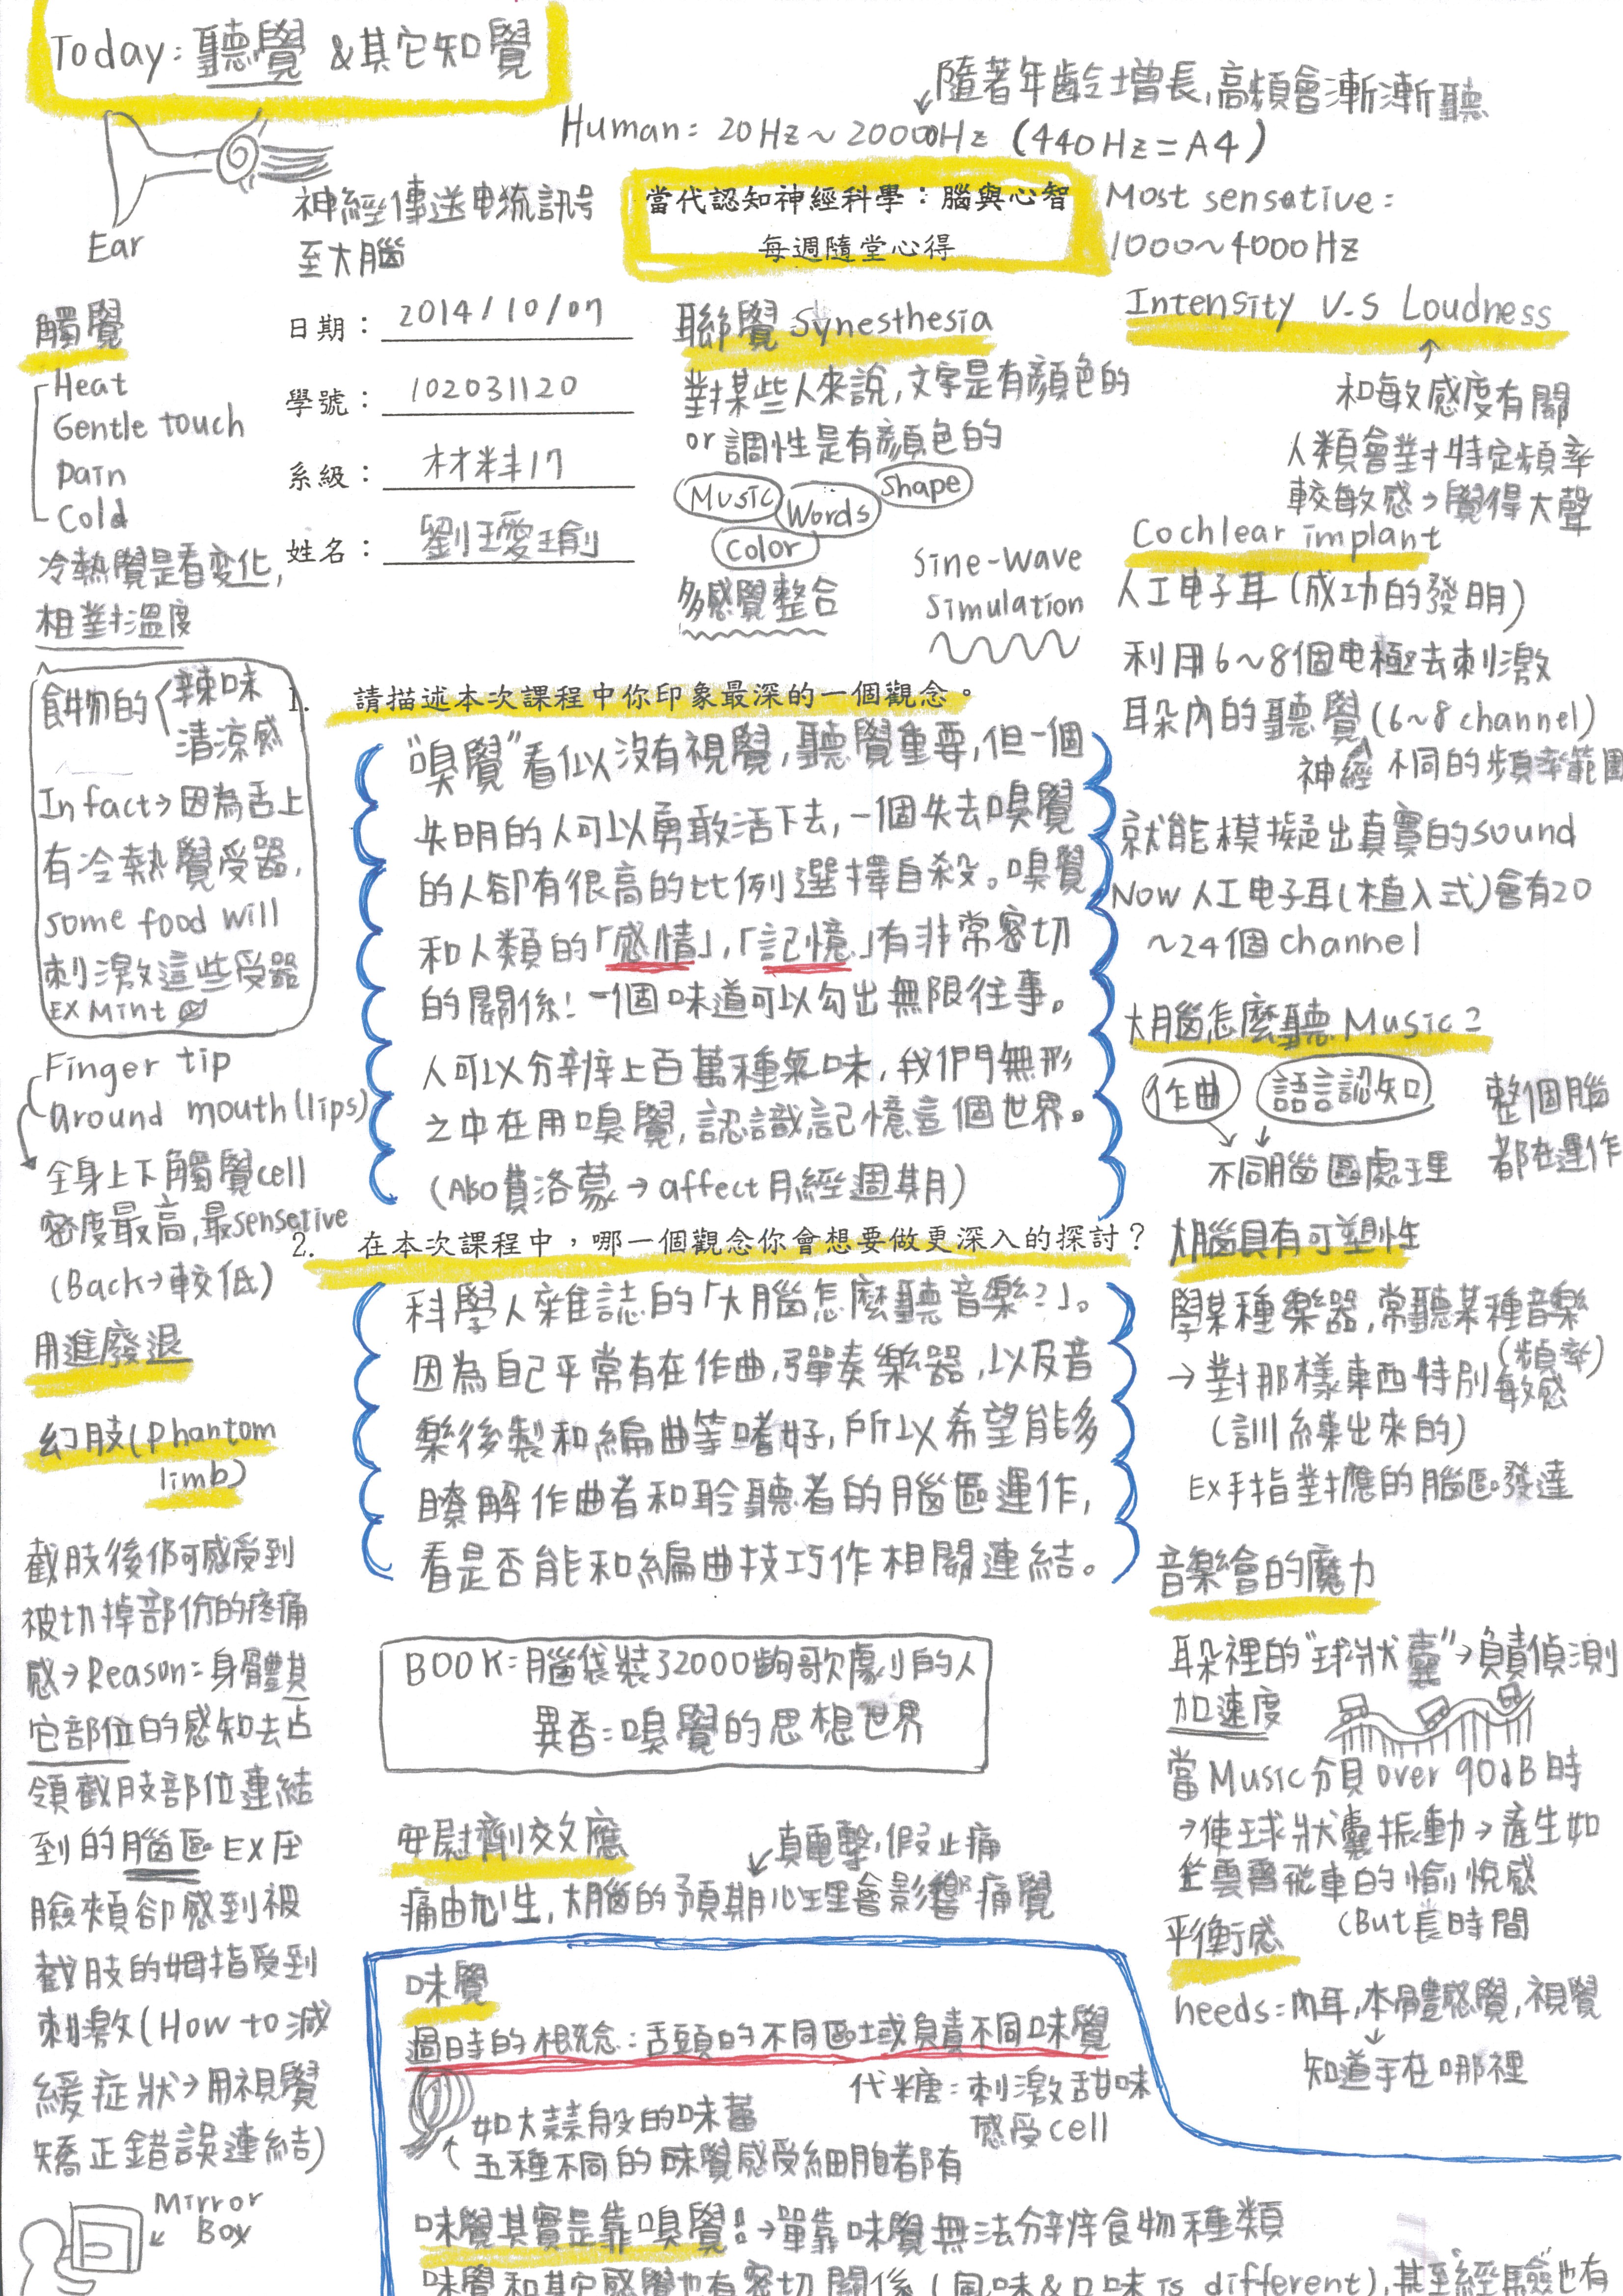 Today: 聽覺 &其它知覺
隨著年齡增長,高頻會漸漸聽
Human: 20Hz~20000Hz (440Hz=A4)
Ear
神經傳送电流訊号
至大腦
當代認知神經科學：腦與心智
每週隨堂心得
Most sensative:
1000~4000Hz
日期：2014/10/07
學號：102031120
系級：材料17
姓名：劉瑷瑜
觸覺
Heat
Gentle touch
Pain
Cold
冷熱覺是看变化,
相對溫度
食物的 辣味
清涼感
In fact→因為舌上
有冷熱覺受器,
some food will
刺激這些受器
EX Mint
Finger tip
around mouth(lips)
全身上下觸覺cell
密度最高,最sensetive
(Back→較低)
用進廢退
幻肢(Phantom
limb)
截肢後仍可感受到
被切掉部份的疼痛
感→Reason:身體其
它部位的感知去占
領截肢部位連結
到的腦區 EX压
臉頰卻感到被
截肢的姆指受到
刺激(How to減
緩症狀→用視覺
矯正錯誤連結)
Mirror
Box
聯覺 Synesthesia
對某些人來說,文字是有顏色的
or 調性是有顏色的
Music Words Shape
Color
多感覺整合
Sine-Wave
Simulation
1. 請描述本次課程中你印象最深的一個觀念。
"嗅覺"看似沒有視覺,聽覺重要,但一個
失明的人可以勇敢活下去,一個失去嗅覺
的人卻有很高的比例選擇自殺。嗅覺
和人類的「感情」,「記憶」有非常密切
的關係!一個味道可以勾出無限往事。
人可以分辨上百萬種氣味,我們無形
之中在用嗅覺,認識記憶這個世界。
(Also費洛蒙→affect月經週期)
2. 在本次課程中，哪一個觀念你會想要做更深入的探討？
科學人雜誌的「大腦怎麼聽音樂?」。
因為自己平常有在作曲,彈奏樂器,以及音
樂後製和編曲等嗜好,所以希望能多
瞭解作曲者和聆聽者的腦區運作,
看是否能和編曲技巧作相關連結。
BOOK:腦袋裝32000齣歌劇的人
異香:嗅覺的思想世界
安慰劑效應
真電擊,假止痛
痛由心生,大腦的預期心理會影響痛覺
味覺
過時的概念:舌頭的不同區域負責不同味覺
如大蒜般的味蕾
五種不同的味覺感受細胞都有
代糖:刺激甜味
感受cell
味覺其實是靠嗅覺!→單靠味覺無法分辨食物種類
味覺和其它感覺也有密切關係(風味&口味is different),甚至經驗也有
Intensity V.S Loudness
和敏感度有關
人類會對特定頻率
較敏感→覺得大聲
Cochlear implant
人工电子耳(成功的發明)
利用6~8個电極去刺激
耳朵內的聽覺(6~8 channel)
神經 不同的頻率範圍
就能模擬出真實的sound
Now人工电子耳(植入式)會有20
~24個channel
大腦怎麼聽Music?
作曲 語言認知
不同腦區處理
整個腦
都在運作
大腦具有可塑性
學某種樂器,常聽某種音樂
(頻率)
→對那樣東西特別敏感
(訓練出來的)
EX手指對應的腦區發達
音樂會的魔力
耳朵裡的"球狀囊"→負責偵測
加速度
當Music分貝over 90dB時
→使球狀囊振動→產生如
坐雲霄飛車的愉悅感
(But長時間
平衡感
needs:內耳,本體感覺,視覺
知道手在哪裡